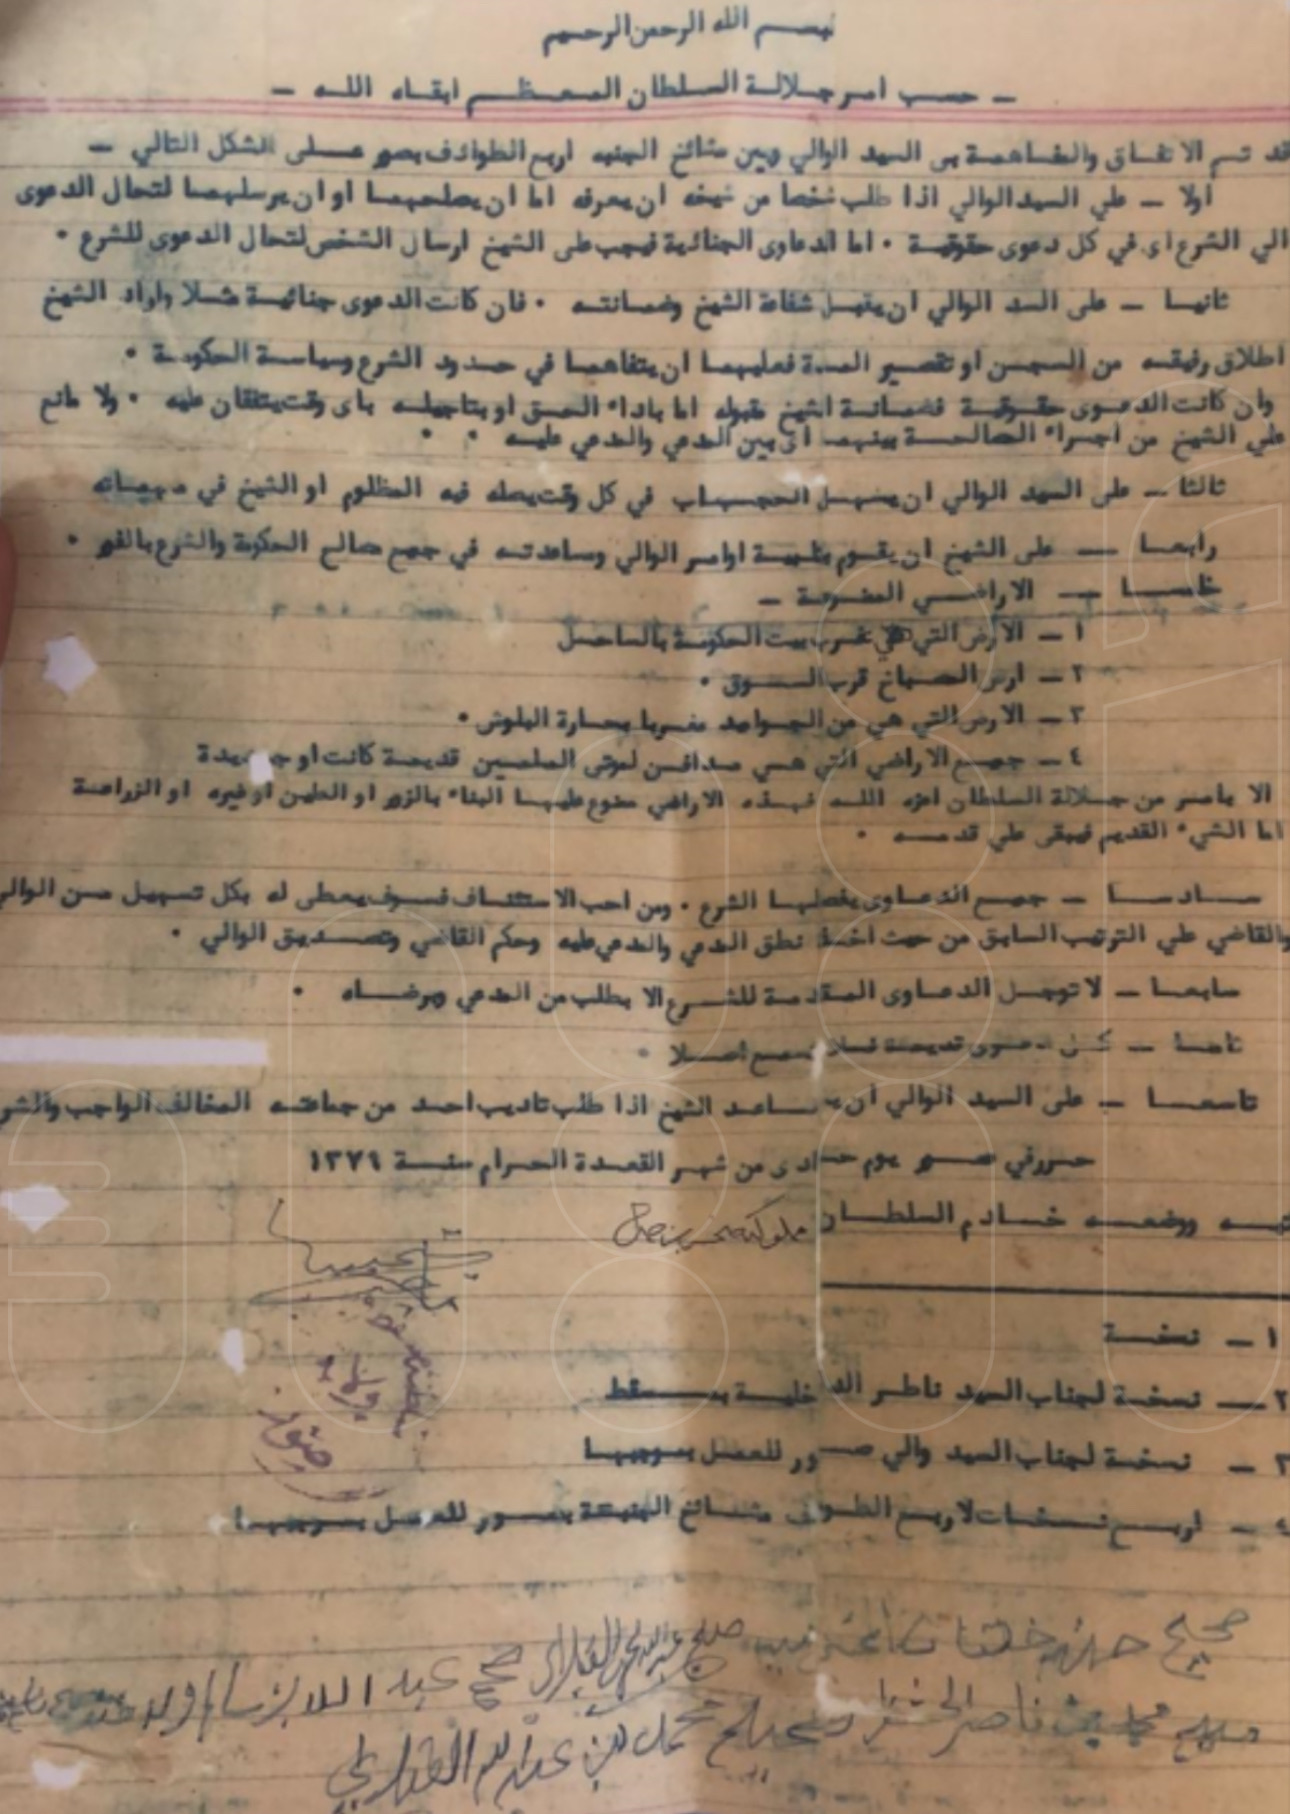 بسم الله الرحمن الرحيم
— حسب امر جلالة السلطان المعظم ابقاه الله —
قد تم الاتفاق والمفاهمة بين السيد الوالي وبين مشائخ الجنبه اربع الطوائف بصور على الشكل التالي —
اولا — علي السيد الوالي اذا طلب شخصا من شيخه ان يعرفه اما ان يصلحهما او ان يرسلهما لتحال الدعوى
الي الشرع اى في كل دعوى حقوقية ٠ اما الدعاوى الجنائية فيجب على الشيخ ارسال الشخص لتحال الدعوى للشرع ٠
ثانيا — على السد الوالي ان يقبل شفاعة الشيخ وضمانته ٠ فان كانت الدعوى جنائية مثلا واراد الشيخ
اطلاق رفيقه من السجن او تقصير المدة فعليهما ان يتفاهما في حدود الشرع وسياسة الحكومة ٠
وان كانت الدعوى حقوقية فضمانة الشيخ مقبوله اما باداء الحق او بتاجيله باى وقت يتفقان عليه ٠ ولا مانع
علي الشيخ من اجراء المصالحة بينهما اى بين المدعي والمدعي عليه ٠
ثالثا — على السيد الوالي ان يسهل الحجاب في كل وقت يصله فيه المظلوم او الشيخ في مهماته
رابعا — على الشيخ ان يقوم بتلبية اوامر الوالي ومساعدته في جميع مصالح الحكومة والشرع بالفور ٠
خامسا — الاراضي الممنوعة —
١ — الارض التي هي غرب بيت الحكومة بالساحل
٢ — ارض الصباخ قرب السوق ٠
٣ — الارض التي هي من الجواعد مغربا بحارة البلوش ٠
٤ — جميع الاراضي التي هي مدافن لموتى المسلمين قديمة كانت او جديدة
الا بامر من جلالة السلطان اعزه الله فهذه الاراضي ممنوع عليها البناء بالزور او الطين او غيره او الزراعة
اما الشيء القديم فيبقى علي قدمه ٠
سادسا — جميع الدعاوى يفصلها الشرع ٠ ومن احب الاستئناف فسوف يعطى له بكل تسهيل من الوالي
والقاضي علي الترتيب السابق من حيث اخذ نطق المدعي والمدعي عليه وحكم القاضي وتصديق الوالي ٠
سابعا — لا توجل الدعاوى المقدمة للشرع الا بطلب من المدعي وبرضاه ٠
ثامنا — كل دعوى قديمة فلا تسمع اصلا ٠
تاسعا — على السيد الوالي ان يساعد الشيخ اذا طلب تاديب احد من جماعته المخالف الواجب والشرع
حرر في صور يوم حادى من شهر القعدة الحرام سنة ١٣٧٩
ووضعه خادم السلطان
١ — نسخة
٢ — نسخة لجناب السيد ناظر الداخلية بمسقط
٣ — نسخة لجناب السيد والي صور للعمل بموجبها
٤ — اربع نسخات لاربع الطوائف مشائخ الجنبة بصور للعمل بموجبها
صحيح
صحيح محمد بن ناصر صحيح محمد بن عبدالله